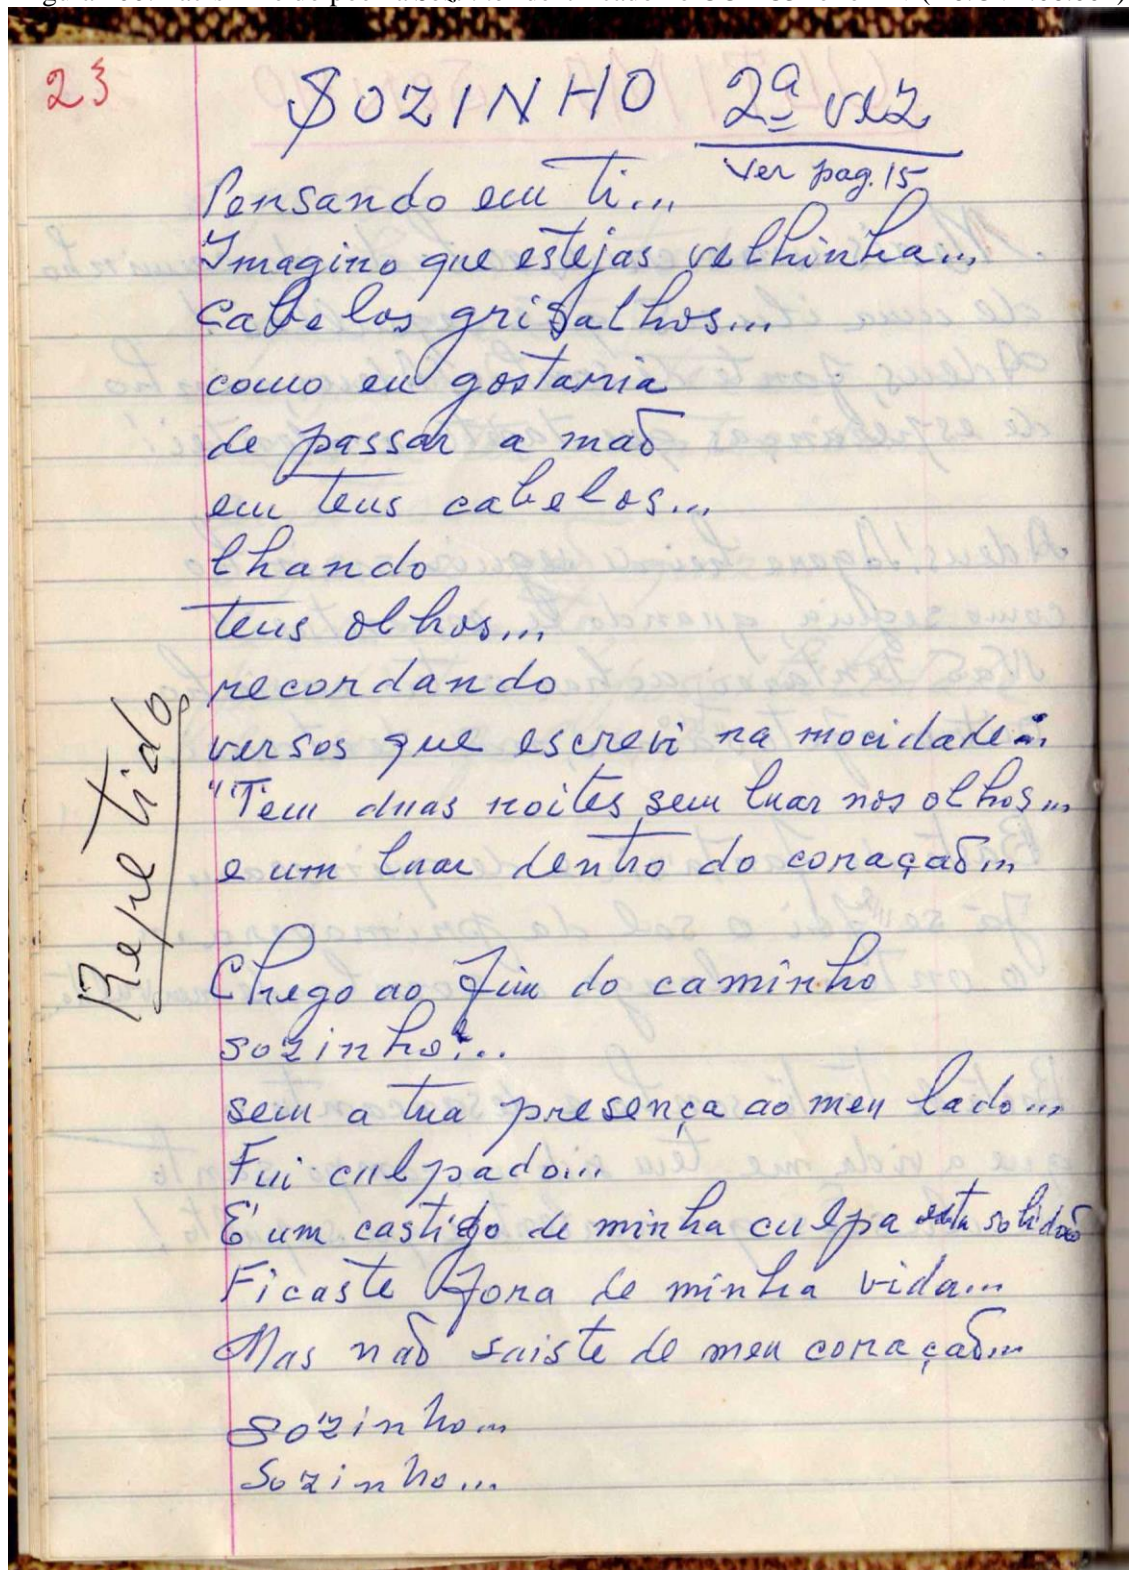 23
SOZINHO 2ª vez
ver pag. 15
Pensando em ti...
Imagino que estejas velhinha...
cabelos grisalhos...
como eu gostaria
de passar a mão
em teus cabelos...
lhando
teus olhos...
recordando
versos que escrevi na mocidade:
"Tem duas noites sem luar nos olhos...
e um luar dentro do coração...
Repetido
Chego ao fim do caminho
sozinho!...
sem a tua presença ao meu lado...
Fui culpado...
É um castigo de minha culpa esta solidão
Ficaste fora de minha vida...
Mas não saiste de meu coração...
Sozinho...
Sozinho...